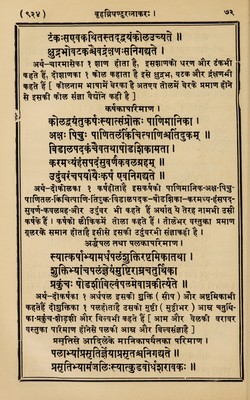 (९२४) बृहन्निघण्टुरत्नाकरः। ७२
टंकःसएवकथितस्तद्वयंकोलउच्यते ॥
क्षुद्रभोवटकश्चैवद्रंक्षणःसनिगद्यते ॥
अर्थ-चारमासेका १ शाण होता है. इसशाणको धरण और टंकभी
कहते हैं. दोशाणका १ कोल कहाता है इसे क्षुद्रभ, वटक और द्रंक्षणभी
कहते हैं [ कोलनाम भाषामें बेरका है अतएव तोलमें बेरके प्रमाण होने
से इसकी कोल संज्ञा वैद्योंने कही है ]
कर्षकापरिमाण.
कोलद्वयंतुकर्षःस्यात्संप्रोक्तः पाणिमानिका।
अक्षः पिचुः पाणितलंकिंचित्पाणिश्चतिंदुकम् ॥
विडालपदकंचैवतथाषोडशिकामता।
करमध्यंहंसपदंसुवर्णंकवलग्रहम् ॥
उदुंबरंचपर्यायैःकर्ष एवनिगद्यते ॥
अर्थ-दोकोलका १ कर्षहोताहै इसकर्षको पाणिमानिक-अक्ष-पिचु-
पाणितल-किंचित्पाणि-तिंदुक-विडालपदक-षोडशिका-करमध्य-हंसपद-
सुवर्ण-कवलग्रह-और उदुंबर भी कहते हैं अर्थात् ये तेरह नामभी उसी
कर्षके हैं । कर्षको लौकिकमें तोला कहते हैं । तोलेभर वस्तुका प्रमाण
गूलरके समान होताहै इसीसे उसकी उदुंबरभी संज्ञाकही है।
अर्द्धपल तथा पलकापरिमाण.
स्यात्कर्षाभ्यामर्धपलंशुक्तिरष्टमिकातथा।
शुक्तिभ्यांचपलंज्ञेयंमुष्टिराम्रंचतुर्थिका।
प्रकुंचः षोडशीबिल्वंपलमेवात्रकीर्त्यते ॥
अर्थ-दोकर्षका १ अर्धपल इसको शुक्ति (सीप) और अष्टमिकाभी
कहतेहैं दोशुक्तिका १ पलहोताहै उसकी मुष्टी (मुट्टी) आम्र चतुर्थि-
का-प्रकुंच-षोडशी और बिल्व कहते हैं । आम और बेलकी बराबर
वस्तुका परिमाण होनेसे पलकी आम्र और बिल्वसंज्ञाहै ]
प्रसृतिसे आदिलेके मानिकापर्यंतका परिमाण.
पलाभ्यांप्रसृतिर्ज्ञेयाप्रसृतश्चनिगद्यते ॥
प्रसृतिभ्यामंजलिःस्यात्कुडवोर्धशरावकः ॥